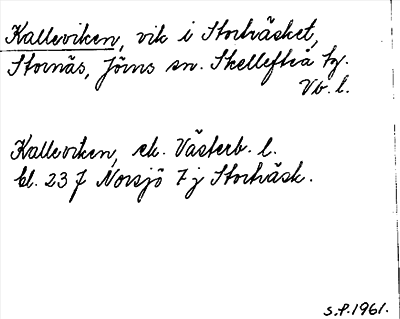 Kalleviken, vik i Storträsket,
Stornäs, Jörns sn. Skellefteå tg.
Vb. l.
Kalleviken, ek. Västerb. l.
bl. 23 J Norsjö 7 j Storträsk.
s.f. 1961.